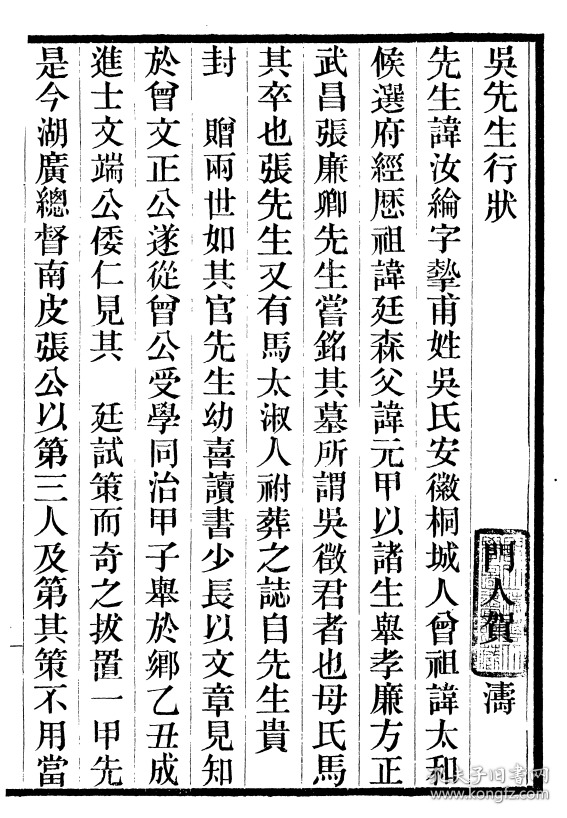 吳先生行狀
門人賀　濤
先生諱汝綸字摯甫姓吳氏安徽桐城人曾祖諱太和
候選府經歷祖諱廷森父諱元甲以諸生舉孝廉方正
武昌張廉卿先生嘗銘其墓所謂吳徵君者也母氏馬
其卒也張先生又有馬太淑人祔葬之誌自先生貴
封　贈兩世如其官先生幼喜讀書少長以文章見知
於曾文正公遂從曾公受學同治甲子舉於鄉乙丑成
進士文端公倭仁見其　廷試策而奇之拔置一甲先
是今湖廣總督南皮張公以第三人及第其策不用當
孔夫子旧书网
www.kongfz.com